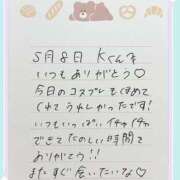 5月8日 Kくんへ
いつもありがとう♡
今日のコスプレもほめて
くれてうれしかったです!
いつもいっぱいイチャイチャ
できてたのしい時間で
ありがとう!!
またすぐ会いたいな♡